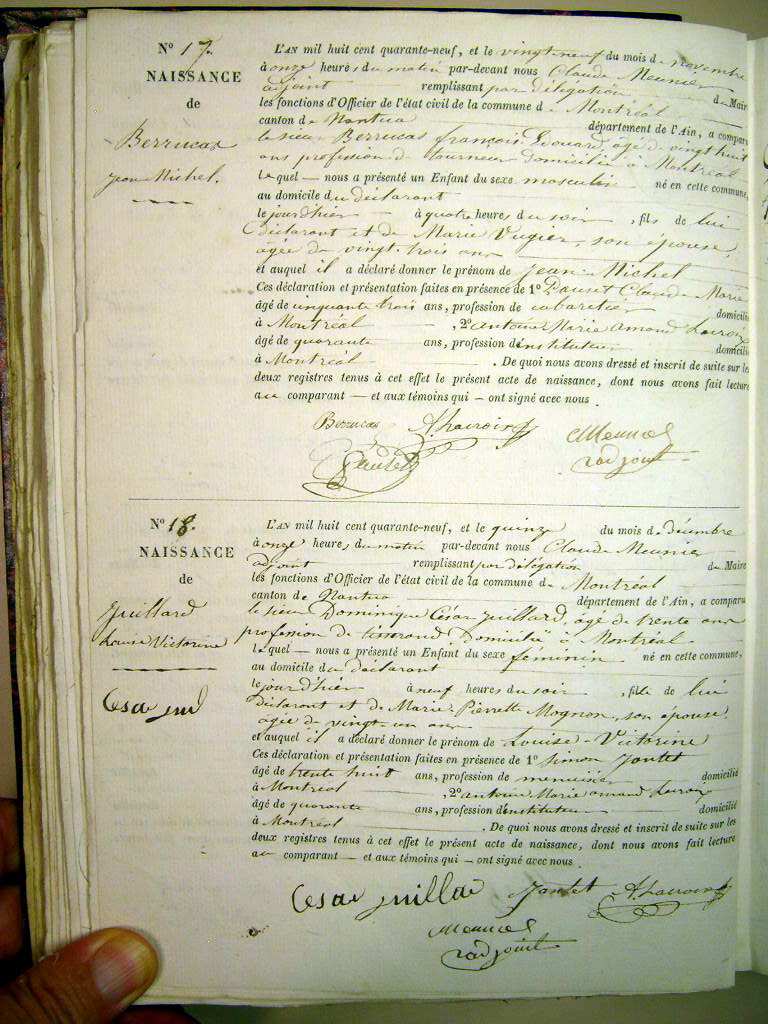 N° 17.
NAISSANCE
de
Berrucaz
Jean Michel.
L'AN mil huit cent quarante-neuf, et le vingt neuf du mois de novembre
à onze heures du matin par-devant nous Claude Meunier
adjoint remplissant par délégation du Maire
les fonctions d'Officier de l'état civil de la commune de Montréal
canton de Nantua département de l'Ain, a comparu
le sieur Berrucaz françois Edouard, âgé de vingt huit
ans profession de tourneur domicilié à Montréal
Lequel — nous a présenté un Enfant du sexe masculin né en cette commune,
au domicile du déclarant
le jour d'hier à quatre heures du soir, fils de lui
déclarant et de Marie Vugier, son épouse,
âgée de vingt-trois ans
et auquel il a déclaré donner le prénom de Jean-Michel
Ces déclaration et présentation faites en présence de 1° Claude Marie
âgé de cinquante trois ans, profession de cabaretier domicilié
à Montréal, 2° antoine Marie amand Lacroix
âgé de quarante ans, profession d'instituteur domicilié
à Montréal. De quoi nous avons dressé et inscrit de suite sur les
deux registres tenus à cet effet le présent acte de naissance, dont nous avons fait lecture
au comparant — et aux témoins qui — ont signé avec nous.
Berrucaz ALacroix CMeunier
adjoint
N° 18.
NAISSANCE
de
Juillard
Louise Victorine
L'AN mil huit cent quarante-neuf, et le quinze du mois de décembre
à onze heures du matin par-devant nous Claude Meunier
adjoint remplissant par délégation du Maire
les fonctions d'Officier de l'état civil de la commune de Montréal
canton de Nantua département de l'Ain, a comparu
le sieur Dominique César Juillard, âgé de trente ans
profession de tisserand domicilié à Montréal
Lequel — nous a présenté un Enfant du sexe féminin né en cette commune,
au domicile du déclarant
le jour d'hier à neuf heures du soir, fille de lui
déclarant et de Marie-Pierrette Mognon, son épouse,
âgée de vingt-un ans
et auquel il a déclaré donner le prénom de Louise-Victorine
Ces déclaration et présentation faites en présence de 1° Simon Jantet
âgé de trente huit ans, profession de menuisier domicilié
à Montréal, 2° antoine Marie amand Lacroix
âgé de quarante ans, profession d'instituteur domicilié
à Montréal. De quoi nous avons dressé et inscrit de suite sur les
deux registres tenus à cet effet le présent acte de naissance, dont nous avons fait lecture
au comparant — et aux témoins qui — ont signé avec nous.
Cesar juillar Jantet ALacroix
CMeunier
adjoint